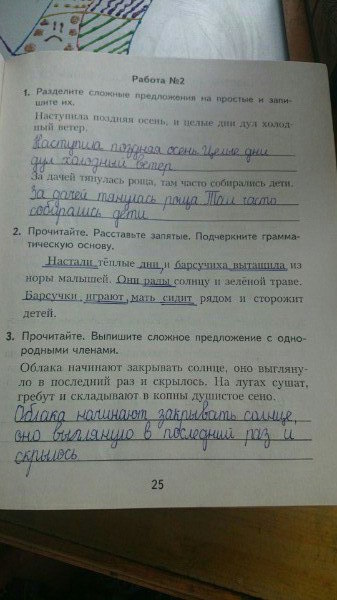 Работа №2
1. Разделите сложные предложения на простые и запи-
шите их.
Наступила поздняя осень, и целые дни дул холод-
ный ветер.
Наступила поздная осень. Целые дни
дул холодный ветер
За дачей тянулась роща, там часто собирались дети.
За дачей тянулась роща Там часто
собирались дети
2. Прочитайте. Расставьте запятые. Подчеркните грамма-
тическую основу.
Настали тёплые дни и барсучиха вытащила из
норы малышей. Они рады солнцу и зелёной траве.
Барсучки играют, мать сидит рядом и сторожит
детей.
3. Прочитайте. Выпишите сложное предложение с одно-
родными членами.
Облака начинают закрывать солнце, оно выгляну-
ло в последний раз и скрылось. На лугах сушат,
гребут и складывают в копны душистое сено.
Облака начинают закрывать солнце,
оно выглянуло в последний раз и
скрылось
25